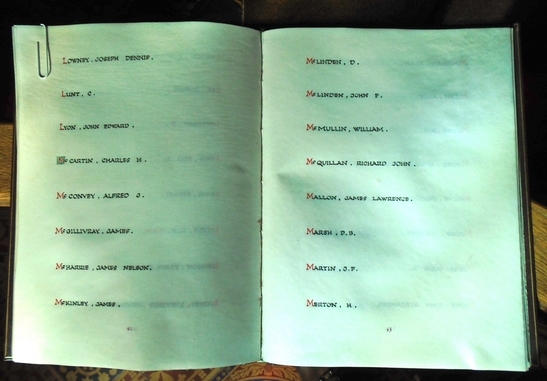 Lowney, Joseph Dennis.
Lunt, C.
Lyon, John Edward.
McCartin, Charles H.
McConvey, Alfred J.
McGillivray, James.
McHarrie, James Nelson.
McKinley, James.
McLinden, D.
McLinden, John F.
McMullin, William.
McQuillan, Richard John.
Mallon, James Lawrence.
Marsh, D.B.
Martin, J.F.
Merton, H.